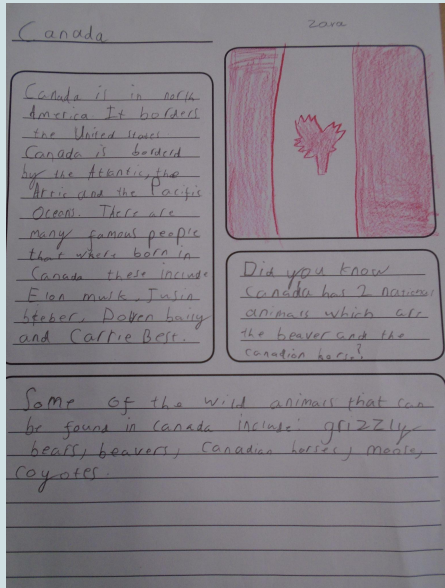 Canada
zara
Canada is in north
America It borders
the United states
Canada is borderd
by the Atlantic, the
Artic and the Pacific
Oceans. There are
many famous people
that where born in
Canada these include
Elon musk, Jusin
bieber, Doven baisy
and Carrie Best.
Did you know
Canada has 2 national
animals which are
the beaver and the
canadian horse?
Some of the wild animals that can
be found in canada include: grizzly
bears, beavers, canadian horses, moose,
coyotes.